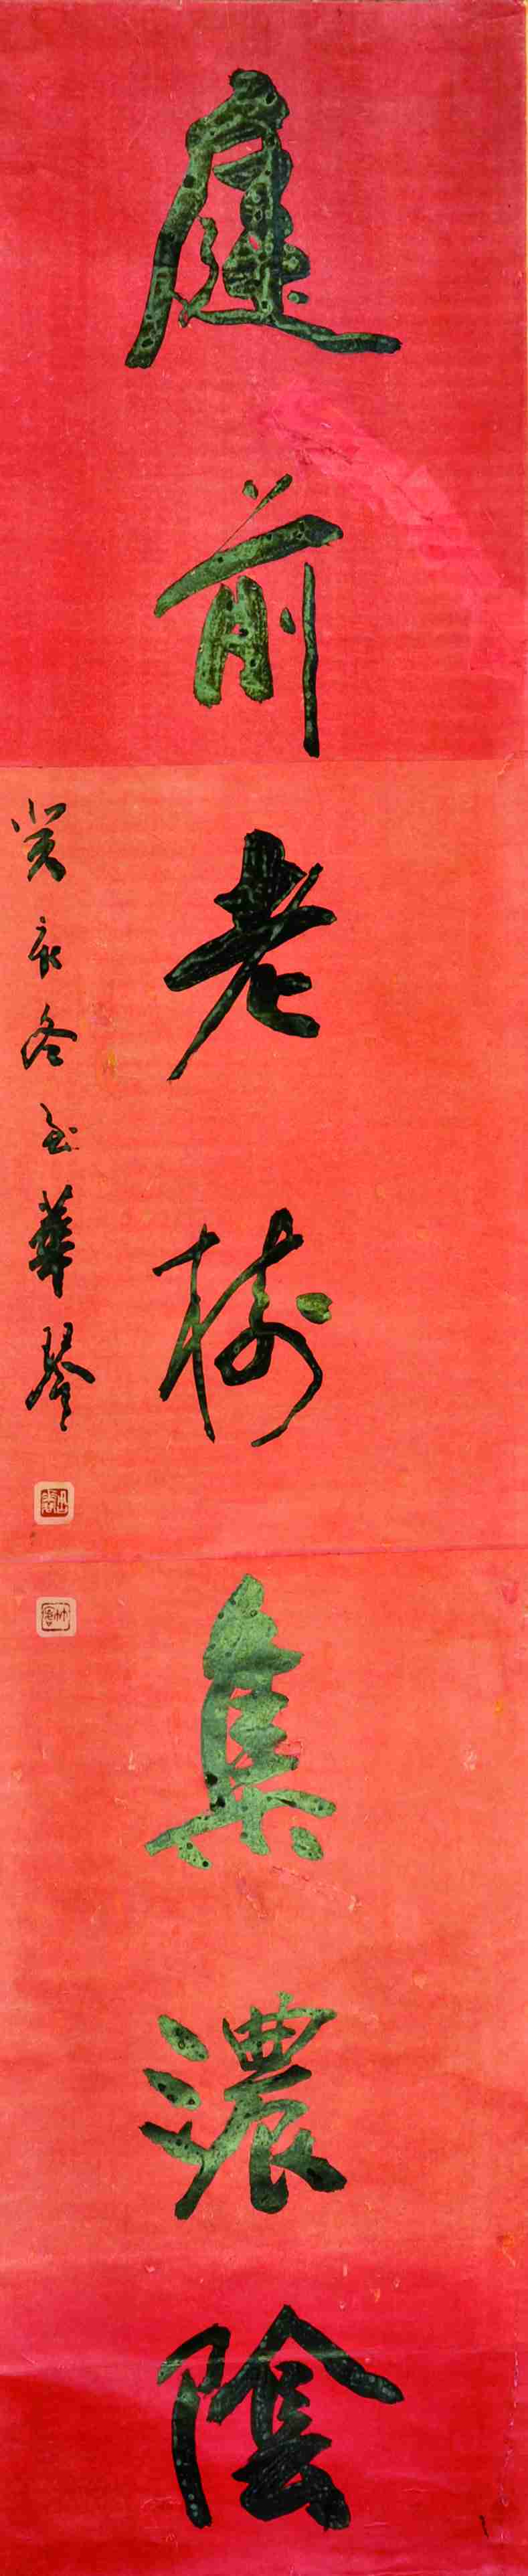 庭前老樹集濃陰
癸亥冬至華琴